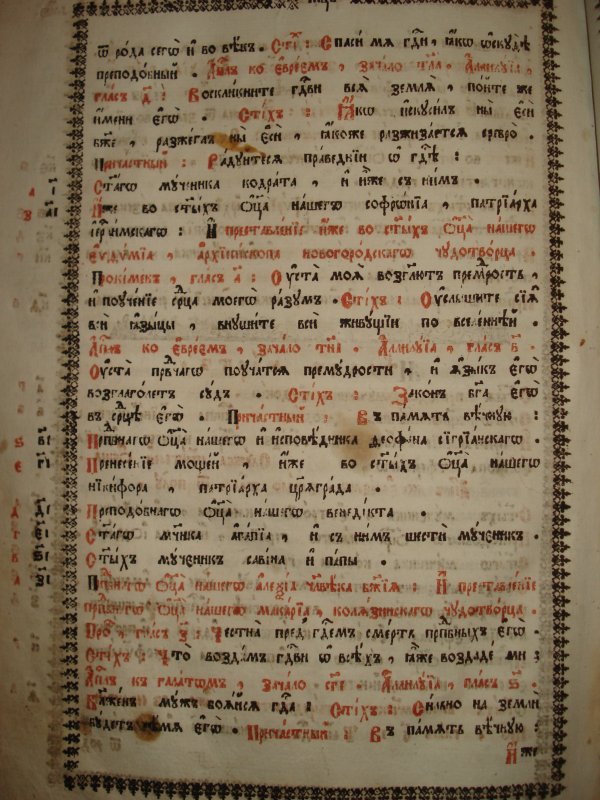 ѿ рода сегѡ̀ и҆ во вѣ́къ . Сті́хъ : Спаси́ мѧ гдⷭ҇и , ꙗ҆́кѡ ѡ҆скꙋдѣ̀
преподо́бный . А҆пⷭ҇лъ ко є҆вре́ємъ , зача́ло ... А҆ллилꙋ́їа ,
гла́съ д҃ : Воскли́кните гдⷭ҇ви всѧ̀ землѧ̀ , по́йте же
и҆́мени є҆гѡ̀ . Сті́хъ : Ꙗ҆́кѡ и҆скꙋси́лъ ны̀ є҆сѝ
бж҃е , разже́глъ ны̀ є҆сѝ , ꙗ҆́коже разжиза́етсѧ сребро̀ .
Прича́стный : Ра́дꙋйтесѧ првⷣедніи ѡ҆ гдⷭ҇ѣ :
Ст҃а́гѡ мꙋ́ченика кодра́та , и҆ и҆̀же съ ни́мъ .
И҆́же во ст҃ы́хъ ѻ҆ц҃а̀ на́шегѡ софро́нїа , патрїа́рха
і҆ерⷭ҇ли́мскагѡ : И҆ преставле́нїе и҆́же во ст҃ы́хъ ѻ҆ц҃а̀ на́шегѡ
є҆ѵѳѵ́мїа , а҆рхїепⷭ҇копа новогоро́дскагѡ чꙋдотво́рца .
Проки́менъ , гла́съ а҃ : Оу҆ста̀ моѧ̀ возгл҃ютъ премⷣрость ,
и҆ поꙋче́нїе срⷣца моегѡ̀ ра́зꙋмъ . Сті́хъ : Оу҆слы́шите сїѧ̑
всѝ ꙗ҆зы́цы , внꙋши́те всѝ живꙋ́щїи по вселе́ннѣй .
А҆пⷭ҇лъ ко є҆вре́ємъ , зача́ло тн҃і . А҆ллилꙋ́їа , гла́съ в҃ .
Оу҆ста̀ првⷣнагѡ поꙋча́тсѧ премꙋ́дрости , и҆ ꙗ҆зы́къ є҆гѡ̀
возглаго́летъ сꙋ́дъ . Сті́хъ : Зако́нъ бг҃а є҆гѡ̀
въ срⷣцѣ є҆гѡ̀ . Прича́стный : Въ па́мѧть вѣ́чнꙋю :
Прпⷣбнагѡ ѻ҆ц҃а̀ на́шегѡ и҆ и҆сповѣ́дника ѳеофа́на сїгрїа́нскагѡ .
Пренесе́нїе моще́й , и҆́же во ст҃ы́хъ ѻ҆ц҃а̀ на́шегѡ
нїки́фора , патрїа́рха цр҃ѧгра́да .
Преподо́бнагѡ ѻ҆ц҃а̀ на́шегѡ венеді́кта .
Ст҃а́гѡ мч҃ника а҆га́пїа , и҆ съ ни́мъ шестѝ мꙋ́ченикъ .
Ст҃ы́хъ мꙋ́ченикъ сави́на и҆ па́пы .
Прпⷣбнагѡ ѻ҆ц҃а̀ на́шегѡ а҆леѯі́а чл҃вѣ́ка бж҃їѧ : И҆ преставле́нїе
прпⷣбнагѡ ѻ҆ц҃а̀ на́шегѡ мака́рїа , колѧзи́нскагѡ чꙋдотво́рца .
Про́к , гла́съ з҃ : Честна̀ пред̾ гдⷭ҇емъ сме́рть прпⷣбныхъ є҆гѡ̀ .
Сті́хъ : Что̀ возда́мъ гдⷭ҇ви ѡ҆ всѣ́хъ , ꙗ҆̀же воздадє́ ми :
А҆пⷭ҇лъ къ гала́тѡмъ , зача́ло сг҃і . А҆ллилꙋ́їа , гла́съ в҃ .
Бл҃же́нъ мꙋ́жъ боѧ́йсѧ гдⷭ҇а : Сті́хъ : Си́льно на землѝ
бꙋ́детъ сѣ́мѧ є҆гѡ̀ . Прича́стный : Въ па́мѧть вѣ́чнꙋю :
И҆́же